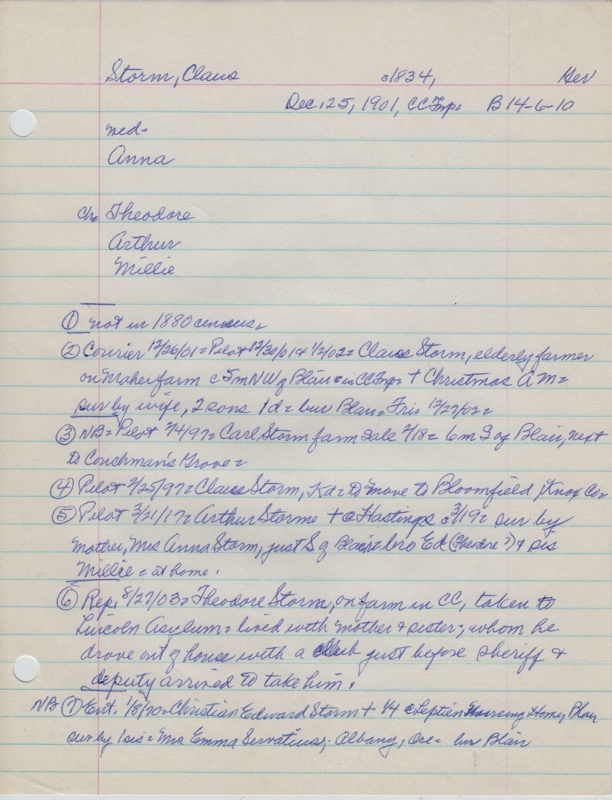 Storm, Claus c1834, Ger
Dec. 25, 1901, CC Twp= B 14-6-10
md-
Anna
Ch= Theodore
Arthur
Millie
① not in 1880 census=
② Courier 12/26/01= Pilot 12/30/01 & 1/2/02= Claus Storm, elderly farmer
on Maher farm c5m NW of Blair= in CC Twp= + Christmas A M=
sur by wife, 2 sons 1d= bur Blair= Fri 12/27/02=
③ NB= Pilot 2/4/97= Carl Storm farm sale 2/18= 6m S of Blair, next
to Couchman's Grove=
④ Pilot 2/25/97= Claus Storm, to move to Bloomfield, Knox Co=
⑤ Pilot 3/21/17= Arthur Storm= + @ Hastings 3/19= sur by
mother, Mrs Anna Storm, just S of Blair= bro Ed (Theodore?) & sis
Millie= at home.
⑥ Rep. 8/27/03= Theodore Storm, on farm in CC, taken to
Lincoln Asylum= lived with mother & sister; whom he
drove out of house with a club just before sheriff &
deputy arrived to take him.
NB ⑦ Ent. 1/8/70= Christian Edward Storm + 1/4 Nursing Home, Blair
sur by 1 sis= Mrs Emma Servatius; Albany, Ore= bur Blair